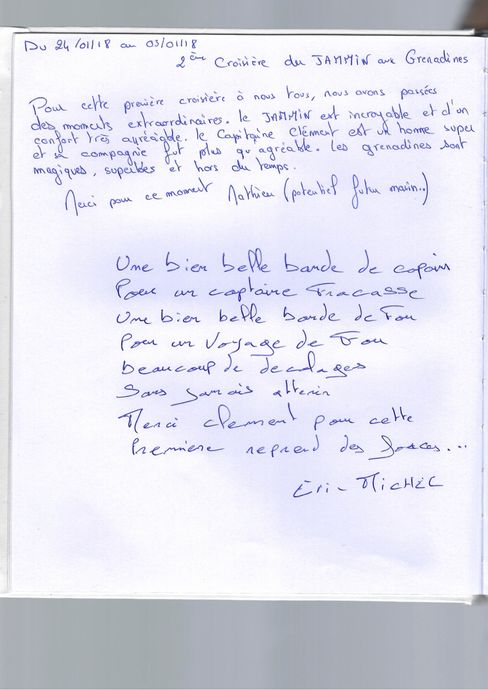 Du 24/01/18 au 03/01/18
2ème Croisière du JAMMIN aux Grenadines
Pour cette première croisière à nous tous, nous avons passées
des moments extraordinaires. le JAMMIN est incroyable et d'un
confort très agréable. le Capitaine Clément est un homme super
et sa compagnie fut plus qu'agréable. Les grenadines sont
magiques, superbes et hors du temps.
Merci pour ce moment Mathieu (potentiel futur marin..)
Une bien belle bande de copains
Pour un capitaine Fracasse
Une bien belle bande de Fou
Pour un Voyage de Fou
Beaucoup de decolages
Sans jamais atterir
Merci clement pour cette
Premiere reprend des forces...
Eric MICHEL